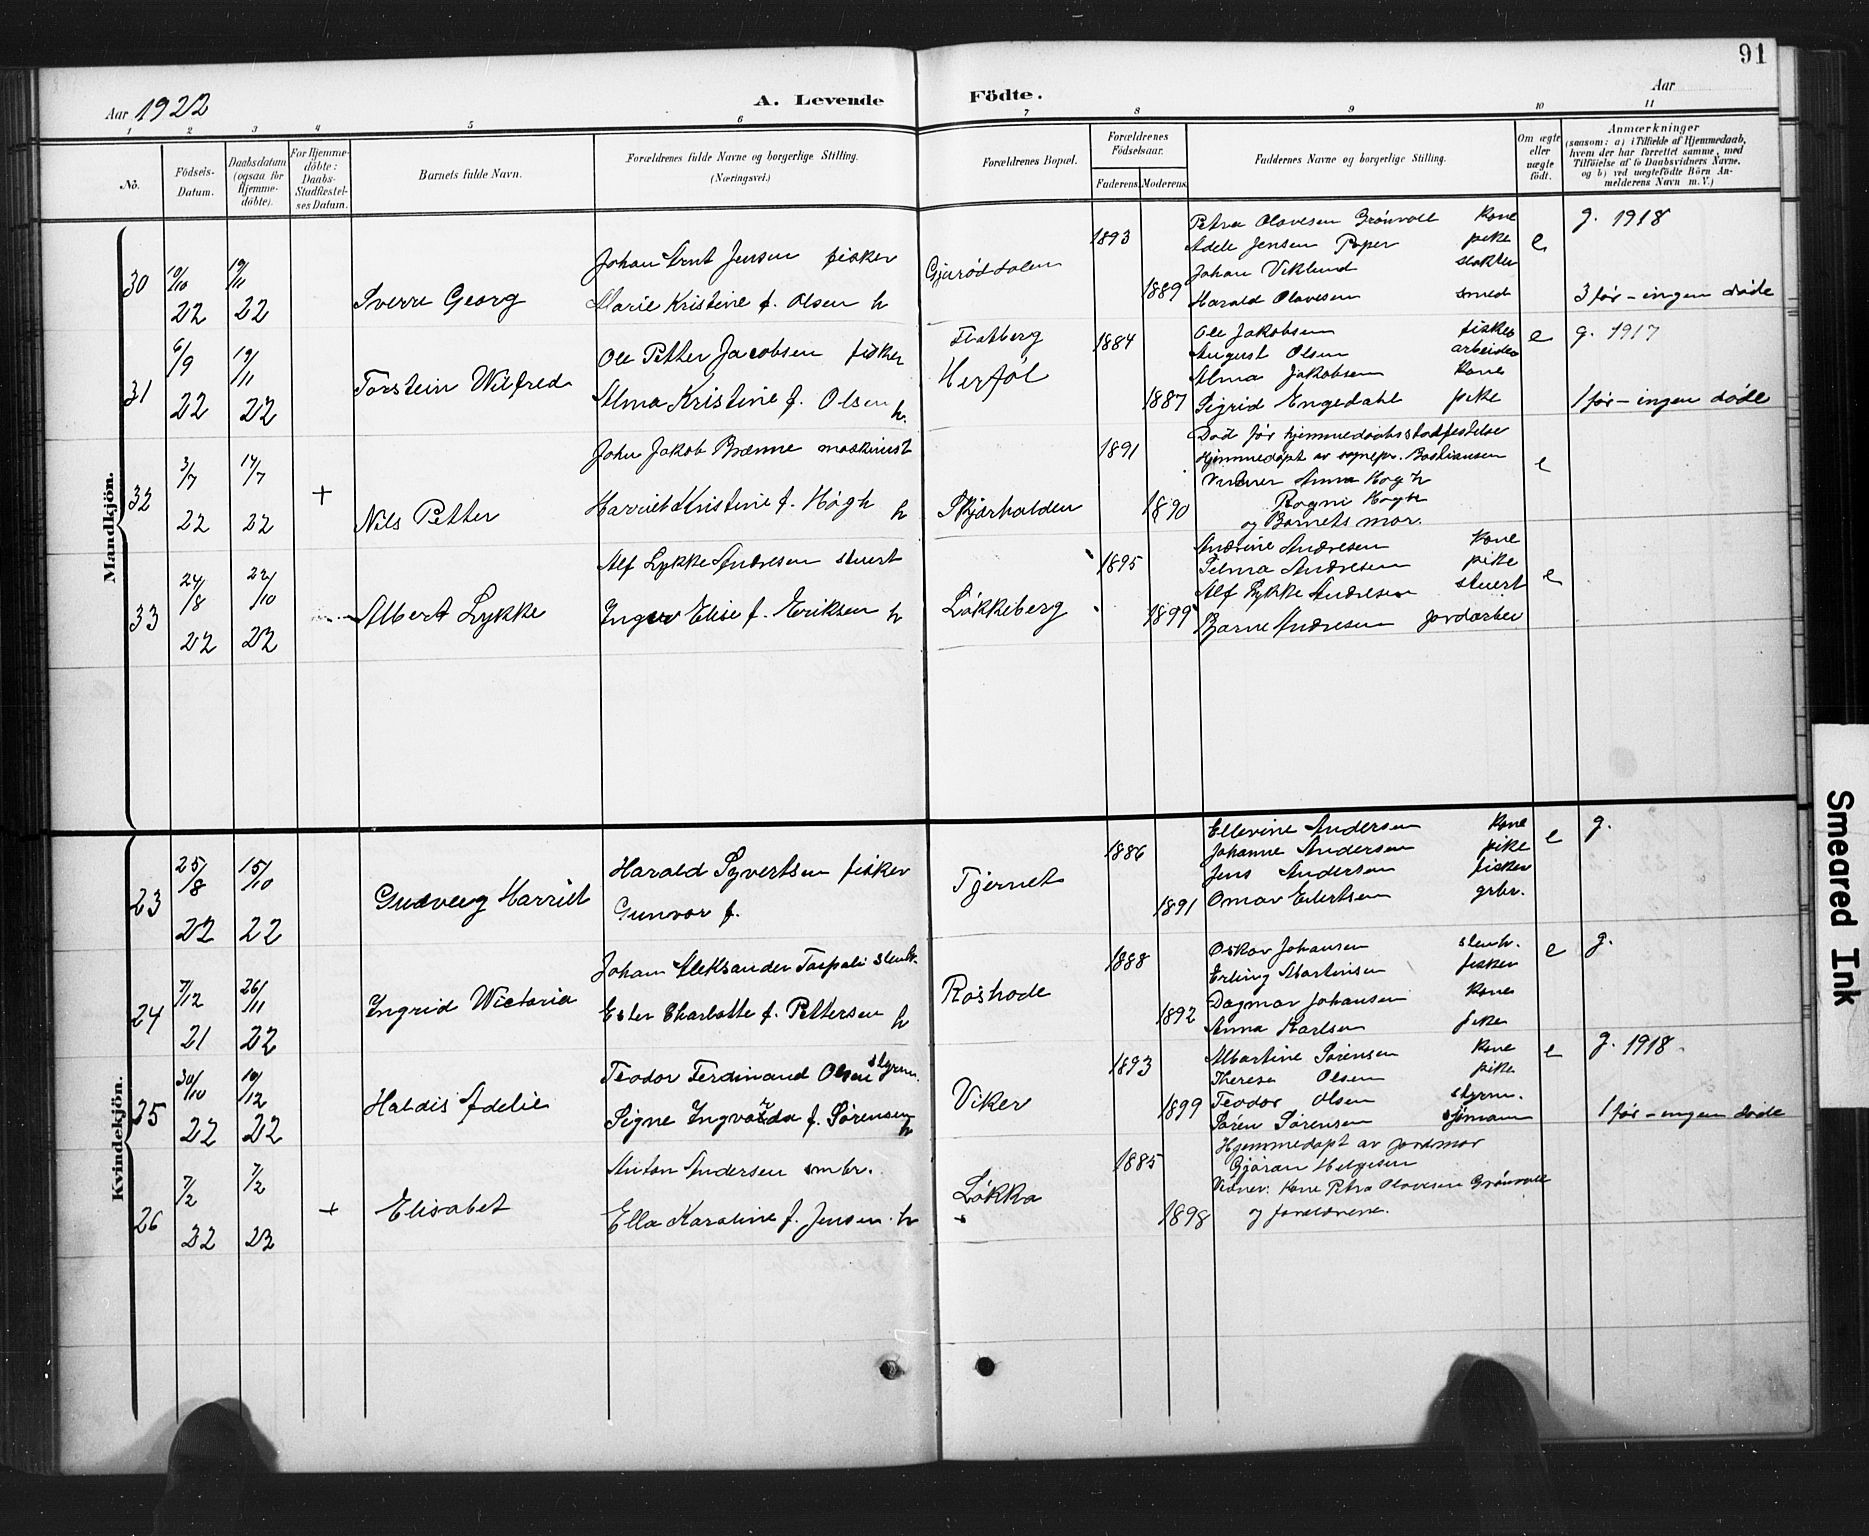 91
Aar 1922
A. Levende Födte.
Aar
1 2 3 4 5 6 7 8 9 10 11
No.
Födsels-
Datum.
Daabsdatum
(ogsaa for
Hjemme-
döbte).
For Hjemme-
döbte:
Daabs-
Stadfæstel-
ses Datum.
Barnets fulde Navn.
Forældrenes fulde Navne og borgerlige Stilling.
(Næringsvei.)
Forældrenes Bopæl.
Forældrenes
Födselsaar.
Faderens.
Moderens.
Faddernes Navne og borgerlige Stilling.
Om ægte
eller
uægte
födt.
Anmærkninger
(saasom: a) i Tilfælde af Hjemmedaab,
hvem der har forrettet samme, med
Tilföielse af to Daabsvidners Navne,
og b) ved uægtefödte Börn An-
melderens Navn m. V.)
Mandkjön.
30
10/10 22
19/11 22
Sverre Georg
Johan Arnt Jensen fisker
Marie Kristine f. Olsen h
Gjurøddalen
1893
1889
Petra Olavesen Grönvold kone
Adele Jensen Roper pike
Johan Viklund slakter
Harald Olavesen smed
e
g. 1918
3 før - ingen døde
31
6/9 22
19/11 22
Torstein Wilfred
Ole Petter Jacobsen fisker
Alma Kristine f. Olsen h.
Flatberg
Herføl
1884
1887
Ole Jakobsen fisker
August Olsen arbeider
Alma Jakobsen kone
Sigrid Engedahl pike
e
g. 1917
1 før - ingen døde
32
3/7 22
17/7 22
+
Nils Petter
John Jakob Brænne maskinist
Harriet Kristine f. Høgh h
Skjærhalden
1891
1890
Død før hjemmedaabsstadfestelse
Hjemmedøpt av sognepr. Bastiansen
Vidner Anna Høgh
Ragni Høgh
og Barnets mor.
e
33
24/8 22
22/10 22
Albert Lykke
Alf Lykke Andresen stuert
Inger Elise f. Eriksen h
Løkkeberg
1895
1899
Andrine Andresen kone
Selma Andresen pike
Alf Lykke Andresen stuert
Bjarne Andresen jordarbei
e
Kvindekjön.
23
25/8 22
15/10 22
Gudveig Harriet
Harald Syvertsen fisker
Gunvor f.
Tjernet
1886
1891
Ellevine Andersen kone
Johanne Andersen pike
Jens Andersen fisker
Omar Eilertsen grbr.
e
g.
24
7/12 21
26/11 22
Ingrid Wictoria
Johan Aleksander Taspali stenh.
Ester Charlotte f. Pettersen h
Røshode
1888
1892
Oskar Johansen stenh.
Erling Martinsen fisker
Dagmar Johansen kone
Anna Karlsen pike
e
g.
25
30/10 22
10/12 22
Haldis Adelie
Teodor Ferdinand Olsen styrm.
Signe Ingvarda f. Sørensen h
Viker
1893
1899
Martine Sørensen kone
Therese Olsen pike
Teodor Olsen styrm.
Søren Sørensen sjømann
e
g. 1918
1 før - ingen døde
26
7/2 22
7/2 22
+
Elisabet
Anton Andersen smbr.
Ella Karoline f. Jensen. h
Løkka
1885
1898
Hjemmedøpt av jordmor
Gjøran Helgesen
Vidner: Kone Petra Olavesen Grønvold
og forældrene.
Smeared Ink